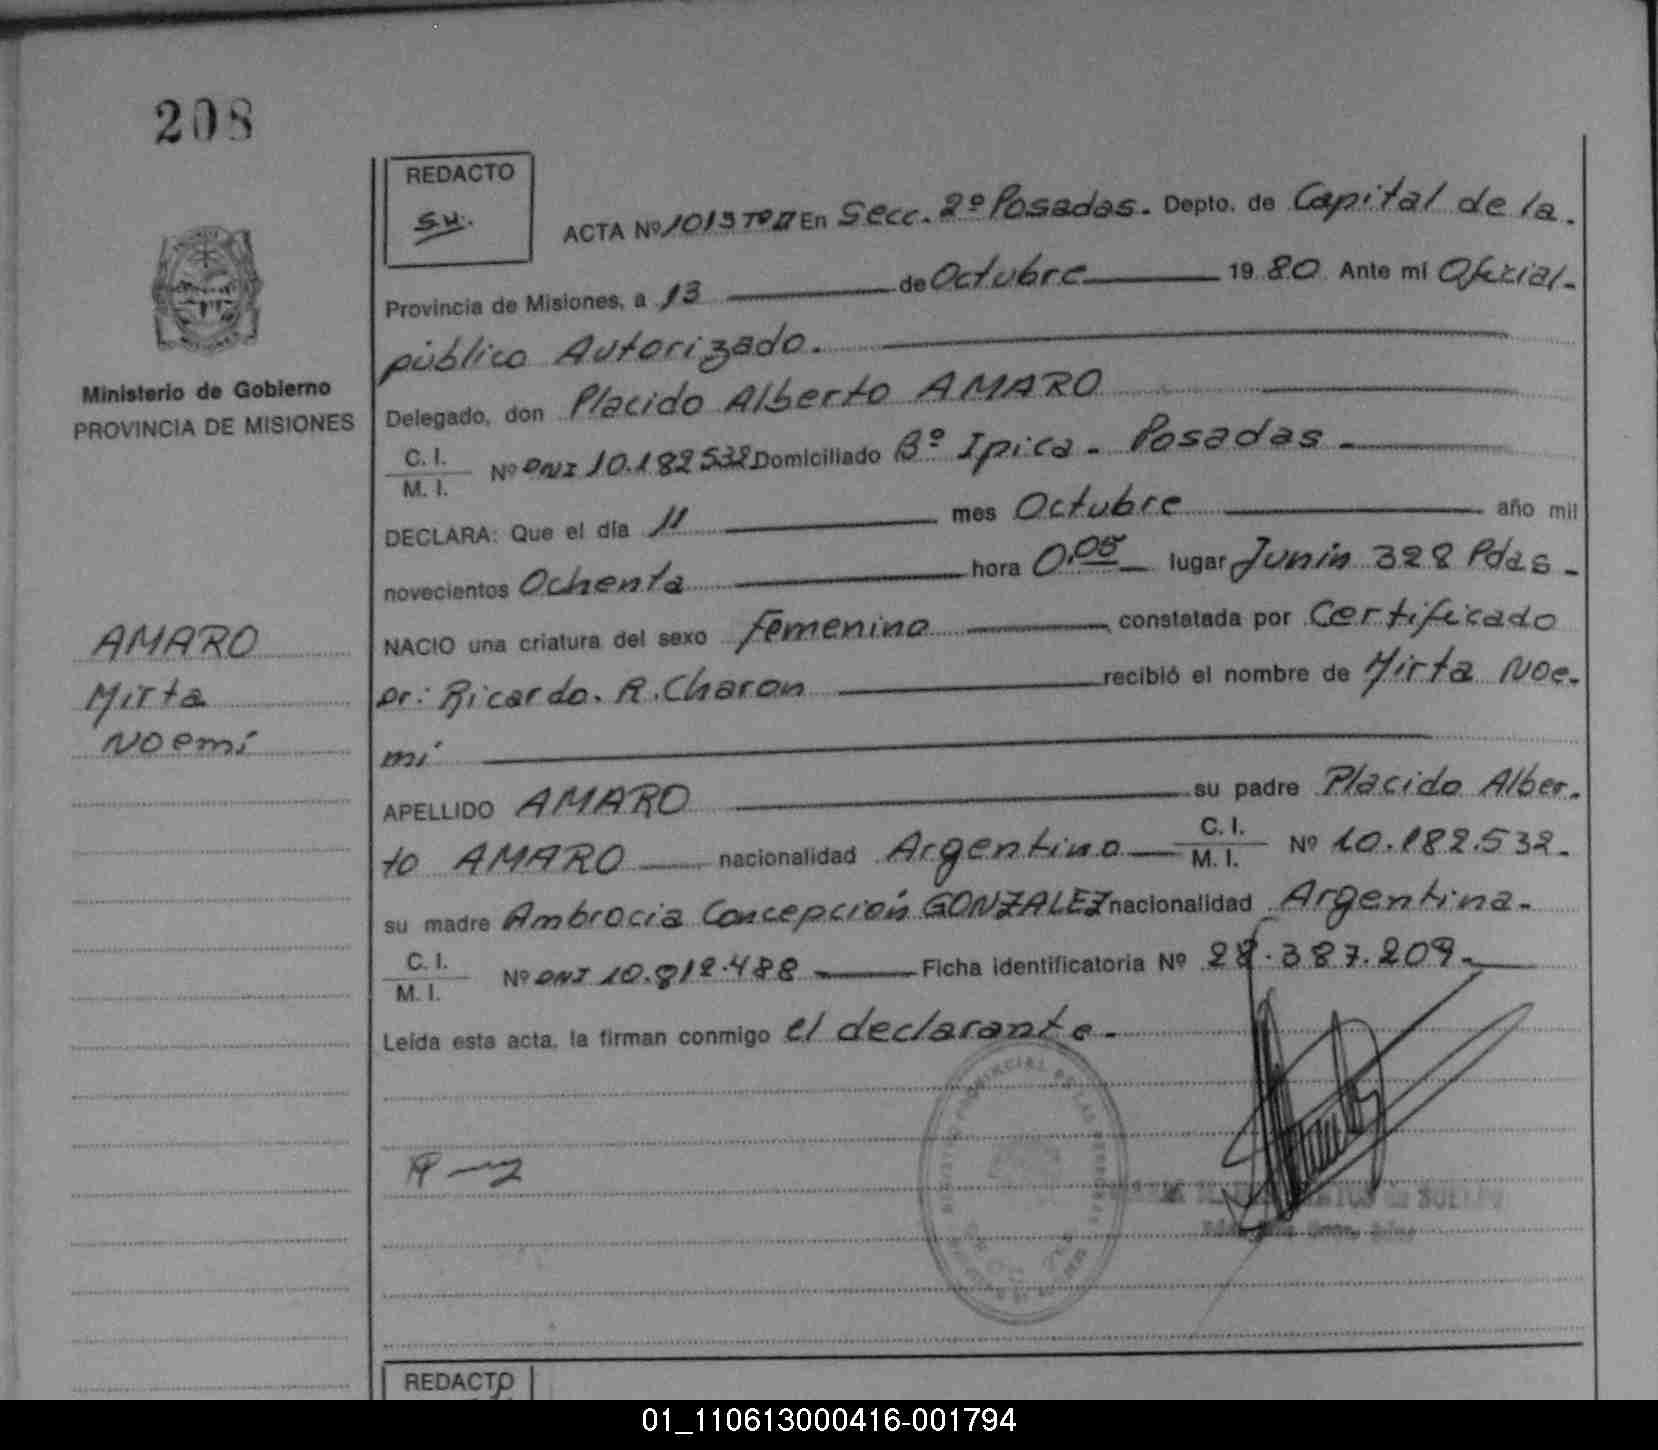 208
REDACTO
S.H.
ACTA Nº 1013 Tº II En Secc. 2º Posadas. Depto. de Capital de la.
Provincia de Misiones, a 13 de Octubre 19 80 Ante mi Oficial-
público Autorizado.
Ministerio de Gobierno
PROVINCIA DE MISIONES
Delegado, don Placido Alberto AMARO
C. I.
M. I. Nº DNI 10.182.532 Domiciliado Bº Ipica. Posadas.
DECLARA: Que el día 11 mes Octubre año mil
novecientos Ochenta hora 0,05 lugar Junin 328 Pdas.
NACIO una criatura del sexo femenino constatada por Certificado
Dr: Ricardo. R. Charon recibió el nombre de Mirta Noe-
mí
AMARO
Mirta
Noemí
APELLIDO AMARO su padre Placido Alber-
to AMARO nacionalidad Argentino C. I.
M. I. Nº 10.182.532.
su madre Ambrocia Concepción GONZALEZ nacionalidad Argentina.
C. I.
M. I. Nº DNI 10.812.488 Ficha identificatoria Nº 28.387.209.
Leída esta acta, la firman conmigo el declarante.
REDACTO
01_110613000416-001794